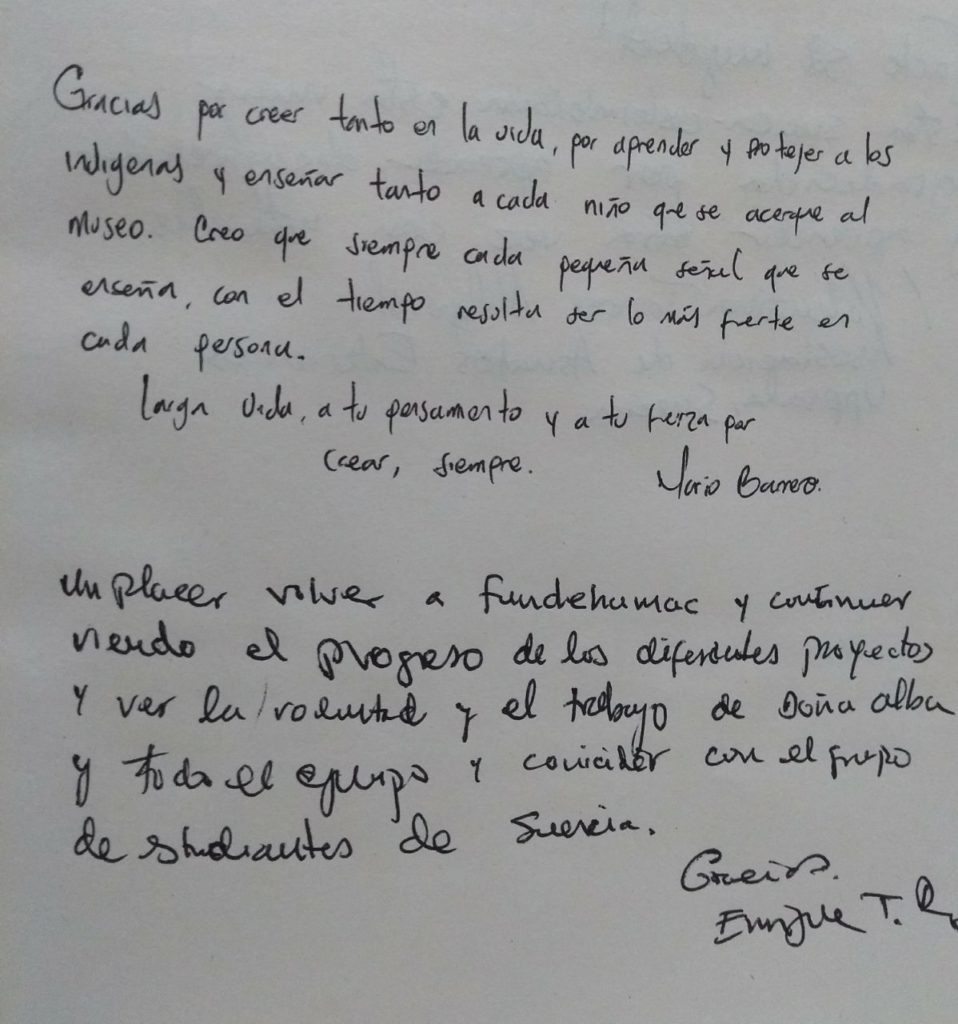 Gracias por creer tanto en la vida, por aprender y protejer a los
indigenas y enseñar tanto a cada niño que se acerque al
museo. Creo que siempre cada pequeña señal que se
enseña, con el tiempo resulta ser lo más fuerte en
cada persona.
larga vida, a tu pensamento y a tu fuerza por
crear, siempre.
Mario Barreo.
Un placer volver a fundehumac y continuer
viendo el progreso de los diferentes proyectos
y ver la voluntad y el trabajo de Doña alba
y todo el equipo y coincider con el grupo
de studiantes de Suecia.
Gracias.
Enrique T. R.